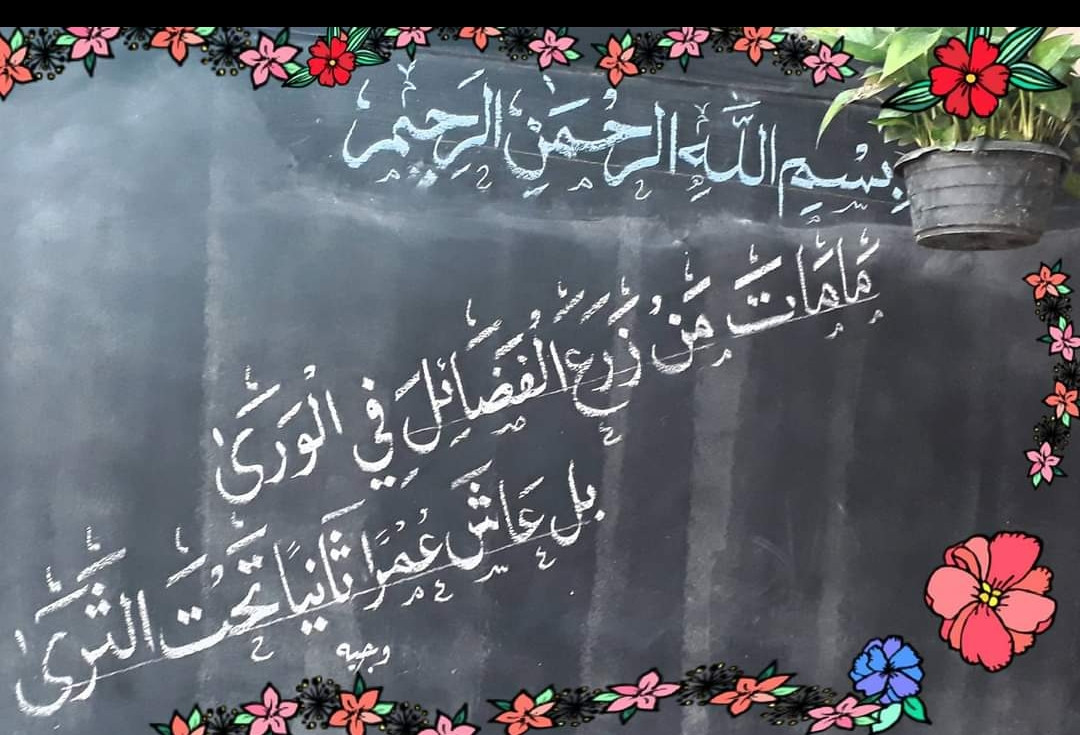 بِسْمِ اللَّهِ الرَّحْمَنِ الرَّحِيمِ
مَامَاتَ مَنْ زَرَعَ الْفَضَائِلَ فِي الْوَرَىٰ
بل عَاشَ عُمْرًا ثَانِيًا تَحْتَ الثَّرَىٰ
وجيه